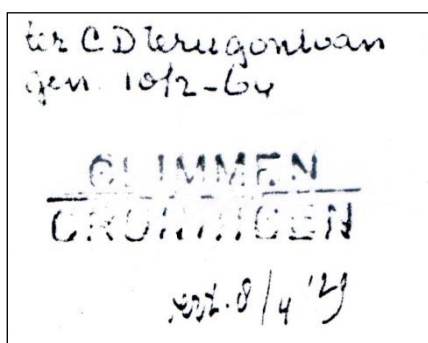 ter C D terugontvan
gen. 10/2-64
GLIMMEN
GRONINGEN
8/4 '29